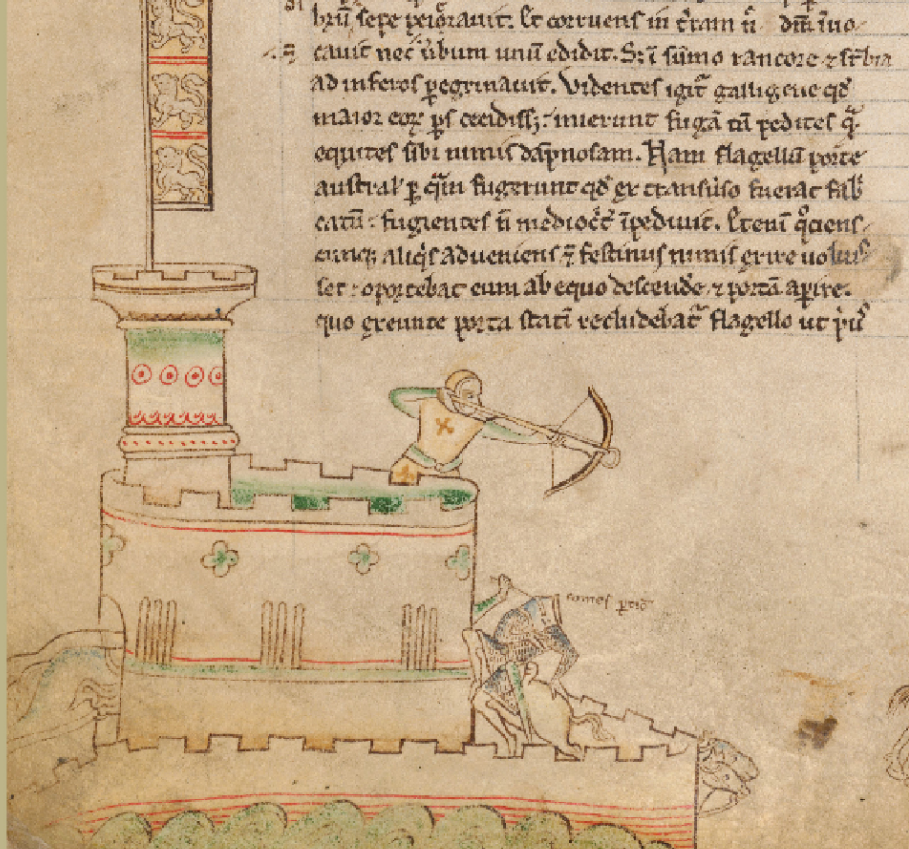 brū sepe peiorauit. Et corruens in t̄ram n̄ dm̄ inuo-
cauit nec ūbum unū edidit. S; ī sūmo rancore ⁊
ad inferos p̱egrinauit. Videntes igit̄ galligene qđ
maior eoꝝ ps̄ cecidiss;: inierunt fugā tā pedites q̄̄
equites sibi nimis dāpnosam. Nam flagellū porte
austral' ꝑ q̄m fugerunt qđ ex transūso fuerat fab̄
catū: fugientes n̄ medioc̄t̄ īpediuit. Etenī q̊ciens-
cunq; aliq̇s adueniens ⁊ festinus nimis exire uoluis
set: oportebat eum ab equo descend̄e ⁊ portā apire.
quo exeunte porta statī recludebat̄ flagello ut ṗus
comes ꝑtic̄